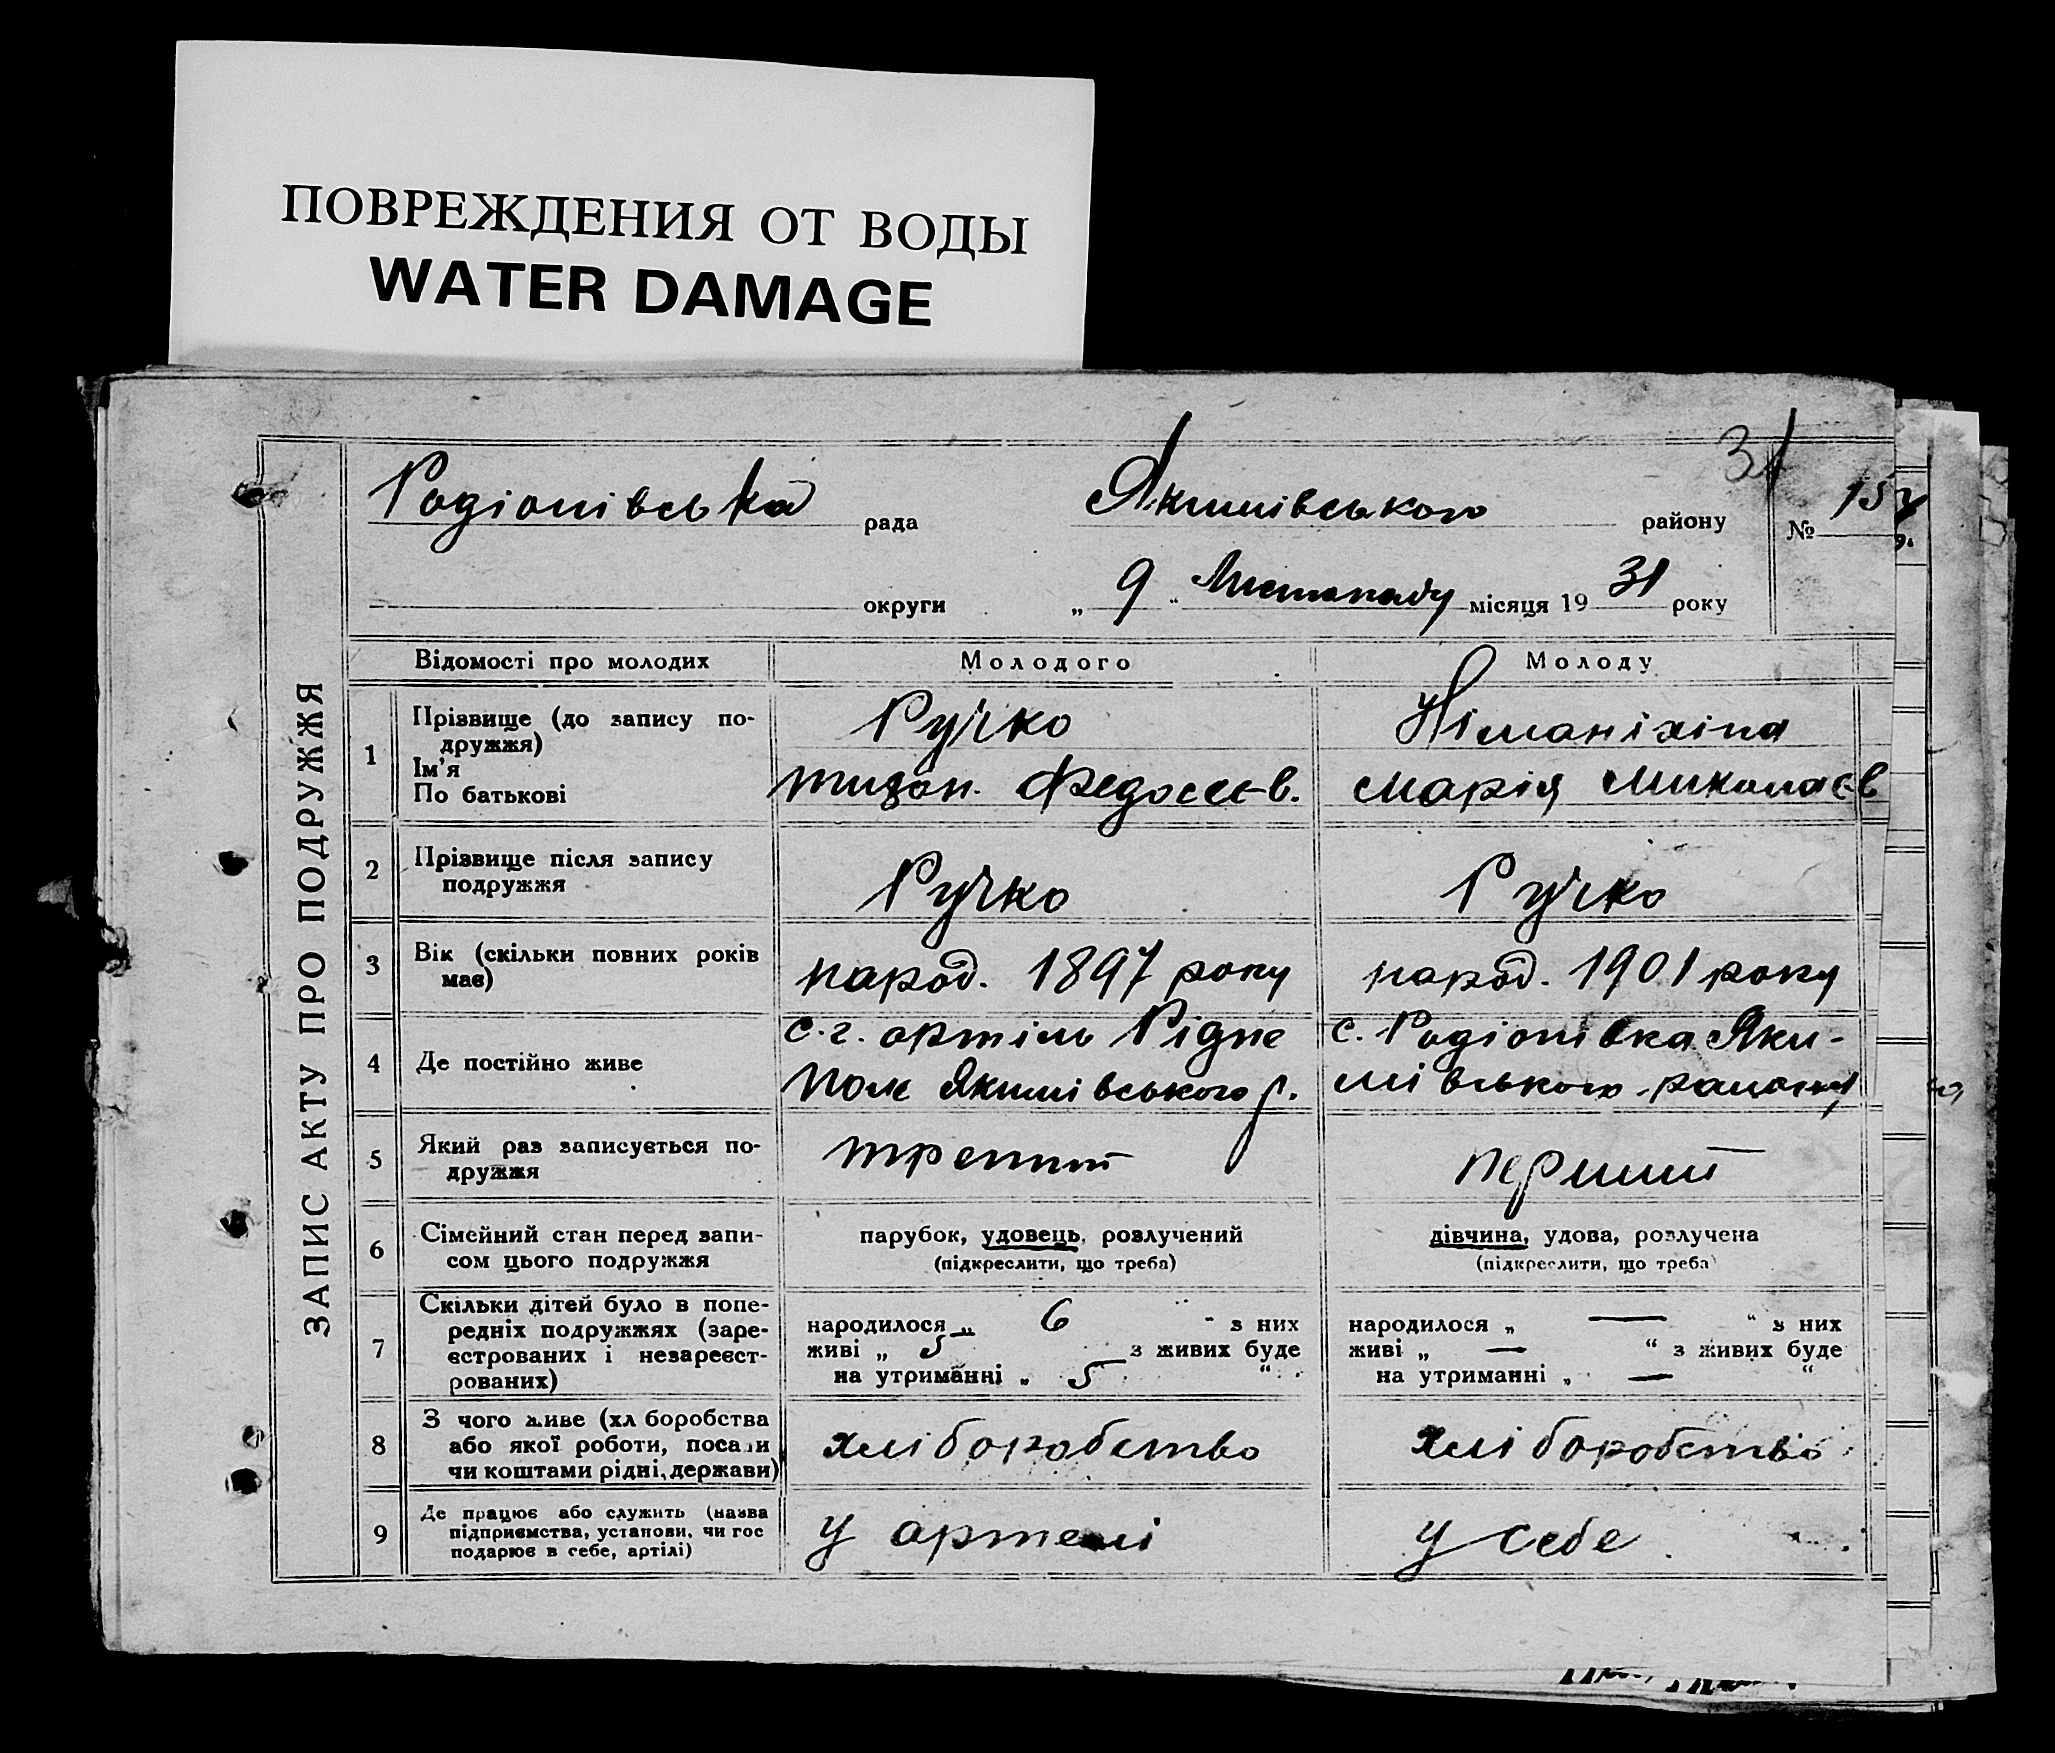 ПОВРЕЖДЕНИЯ ОТ ВОДЫ
WATER DAMAGE
31
Родіонівська рада Якимівського району № 15
округи „ 9 “ Листопаду місяця 19 31 року
ЗАПИС АКТУ ПРО ПОДРУЖЖЯ
Відомості про молодих Молодого Молоду
1 Прізвище (до запису по-
дружжя)
Ім'я
По батькові
Ручко
Федосеєв.
Марія Миколаєв
2 Прізвище після запису
подружжя
Ручко Ручко
3 Вік (скільки повних років
має)
народ. 1897 року народ. 1901 року
4 Де постійно живе
с.г. артіль Рідне
Поле Якимівського р.
с. Родіонівка Яки-
мівського району
5 Який раз записується по-
дружжя
третий перший
6 Сімейний стан перед запи-
сом цього подружжя
парубок, удовець, розлучений
(підкреслити, що треба)
дівчина, удова, розлучена
(підкреслити, що треба)
7 Скільки дітей було в попе-
редніх подружжях (заре-
єстрованих і незареєст-
рованих)
народилося „ 6 “ з них
живі „ 5 з живих буде
на утриманні „ 5 “
народилося „ — “ з них
живі „ — “ з живих буде
на утриманні „ — “
8 З чого живе (хл боробства
або якої роботи, посади
чи коштами рідні, держави)
хліборобство хліборобство
9 Де працює або служить (назва
підприємства, установи, чи гос
подарює в себе, артілі)
у артелі у себе